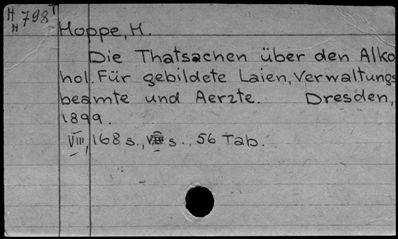 H 798 T
H
Hoppe, H.
Die Thatsachen über den Alko
hol. Für gebildete Laien, Verwaltungs
beamte und Aerzte. Dresden,
1899.
VIII, 168 s., VIII s., 56 Tab.